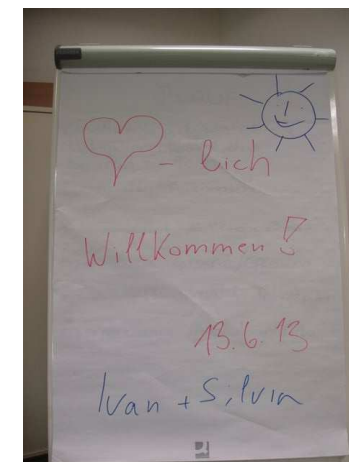 ♡-lich
Willkommen!
13.6.13
Ivan + Silvia